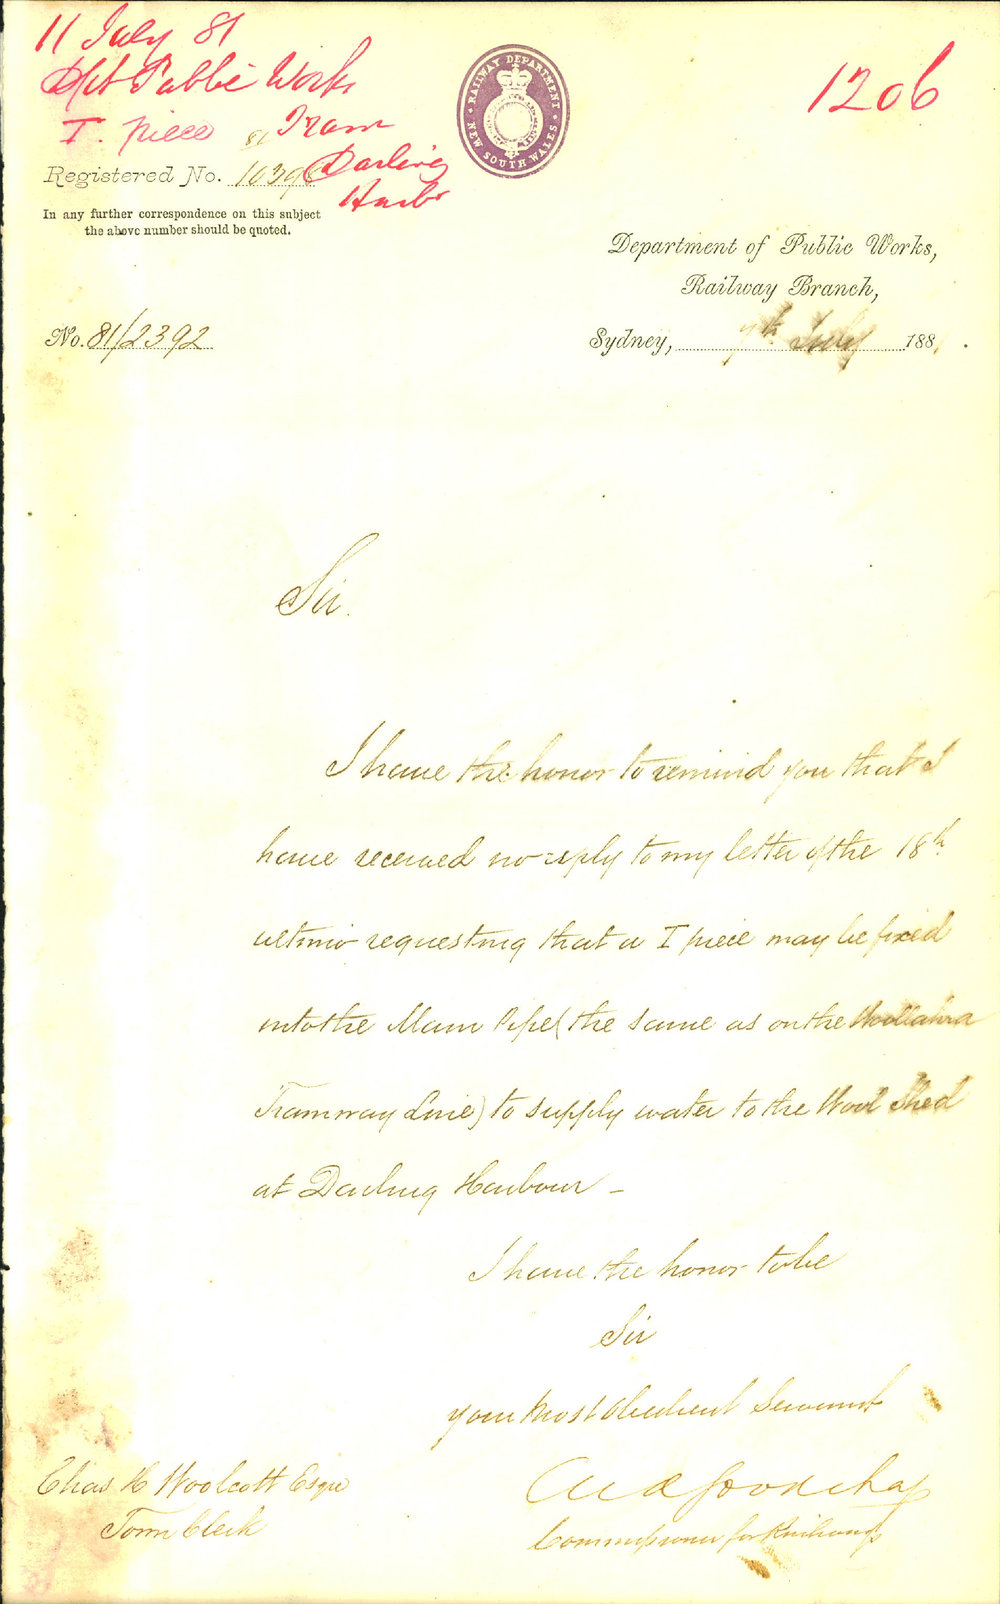 11 July 81
Dept Public Works
T. piece Tram
Darling
Harbr
1206
RAILWAY DEPARTMENT
NEW SOUTH WALES
81
Registered No. 10396
In any further correspondence on this subject
the above number should be quoted.
Department of Public Works,
Railway Branch,
No. 81/2392
Sydney, 7th July 188
Sir.
I have the honor to remind you that I
have received no reply to my letter of the 18th
ultimo requesting that a T piece may be fixed
into the Main Pipe (the same as on the Woollahra
Tramway Line) to supply water to the Wool Shed
at Darling Harbour –
I have the honor to be
Sir
your most obedient Servant
Chas A Goodchap
Commissioner for Railways
Chas H Woolcott Esqre
Town Clerk